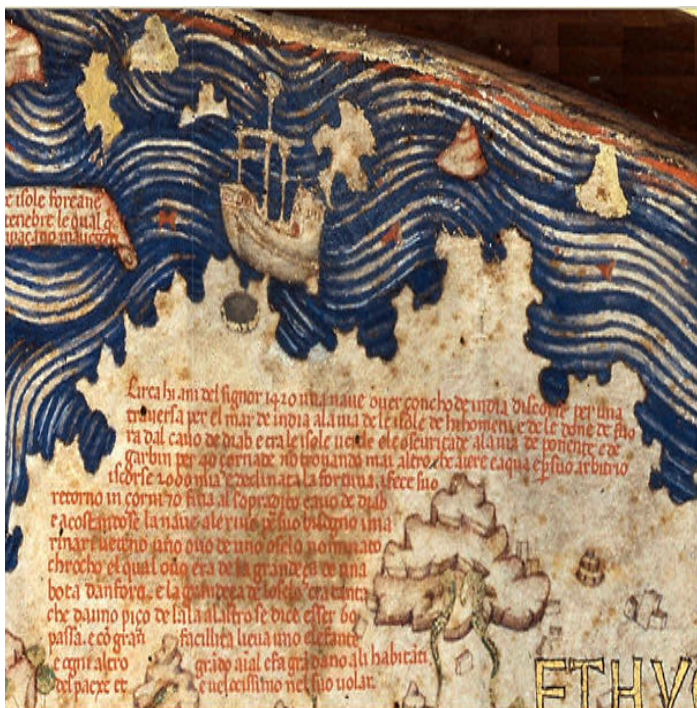 e isole foreane
tenebre le qual q
Circa hi ani del signor 1420 una nave over çoncho de india discorse per una
traversa per el mar de india a la via de le isole de hi homeni e de le done de fuo
ra dal cavo de diab e tra le isole verde e le oscuritade a la via de ponente e de
garbin per 40 çornade nõ trovando mai altro che aiere e aqua e p suo arbitrio
iscorse 2000 mia e declinata la fortuna i fece suo
retorno in çorni 70 fina al sopradito cavo de diab
e acostandose la nave a le rive p suo bisogno i ma
rinari vedeno uno ovo de uno oselo nominato
chrocho el qual ovo era de la grandeça de una
bota d'anfora e la grandeça de l'oselo era tanta
che da uno piço de l'ala al altro se dice esser 60
passa e cõ gran facilità lieva uno elefante
e ogni altro grãdo aĩal e fa grã dano a li habitãti
del paexe et e velocissimo nel suo volar.
ETHY